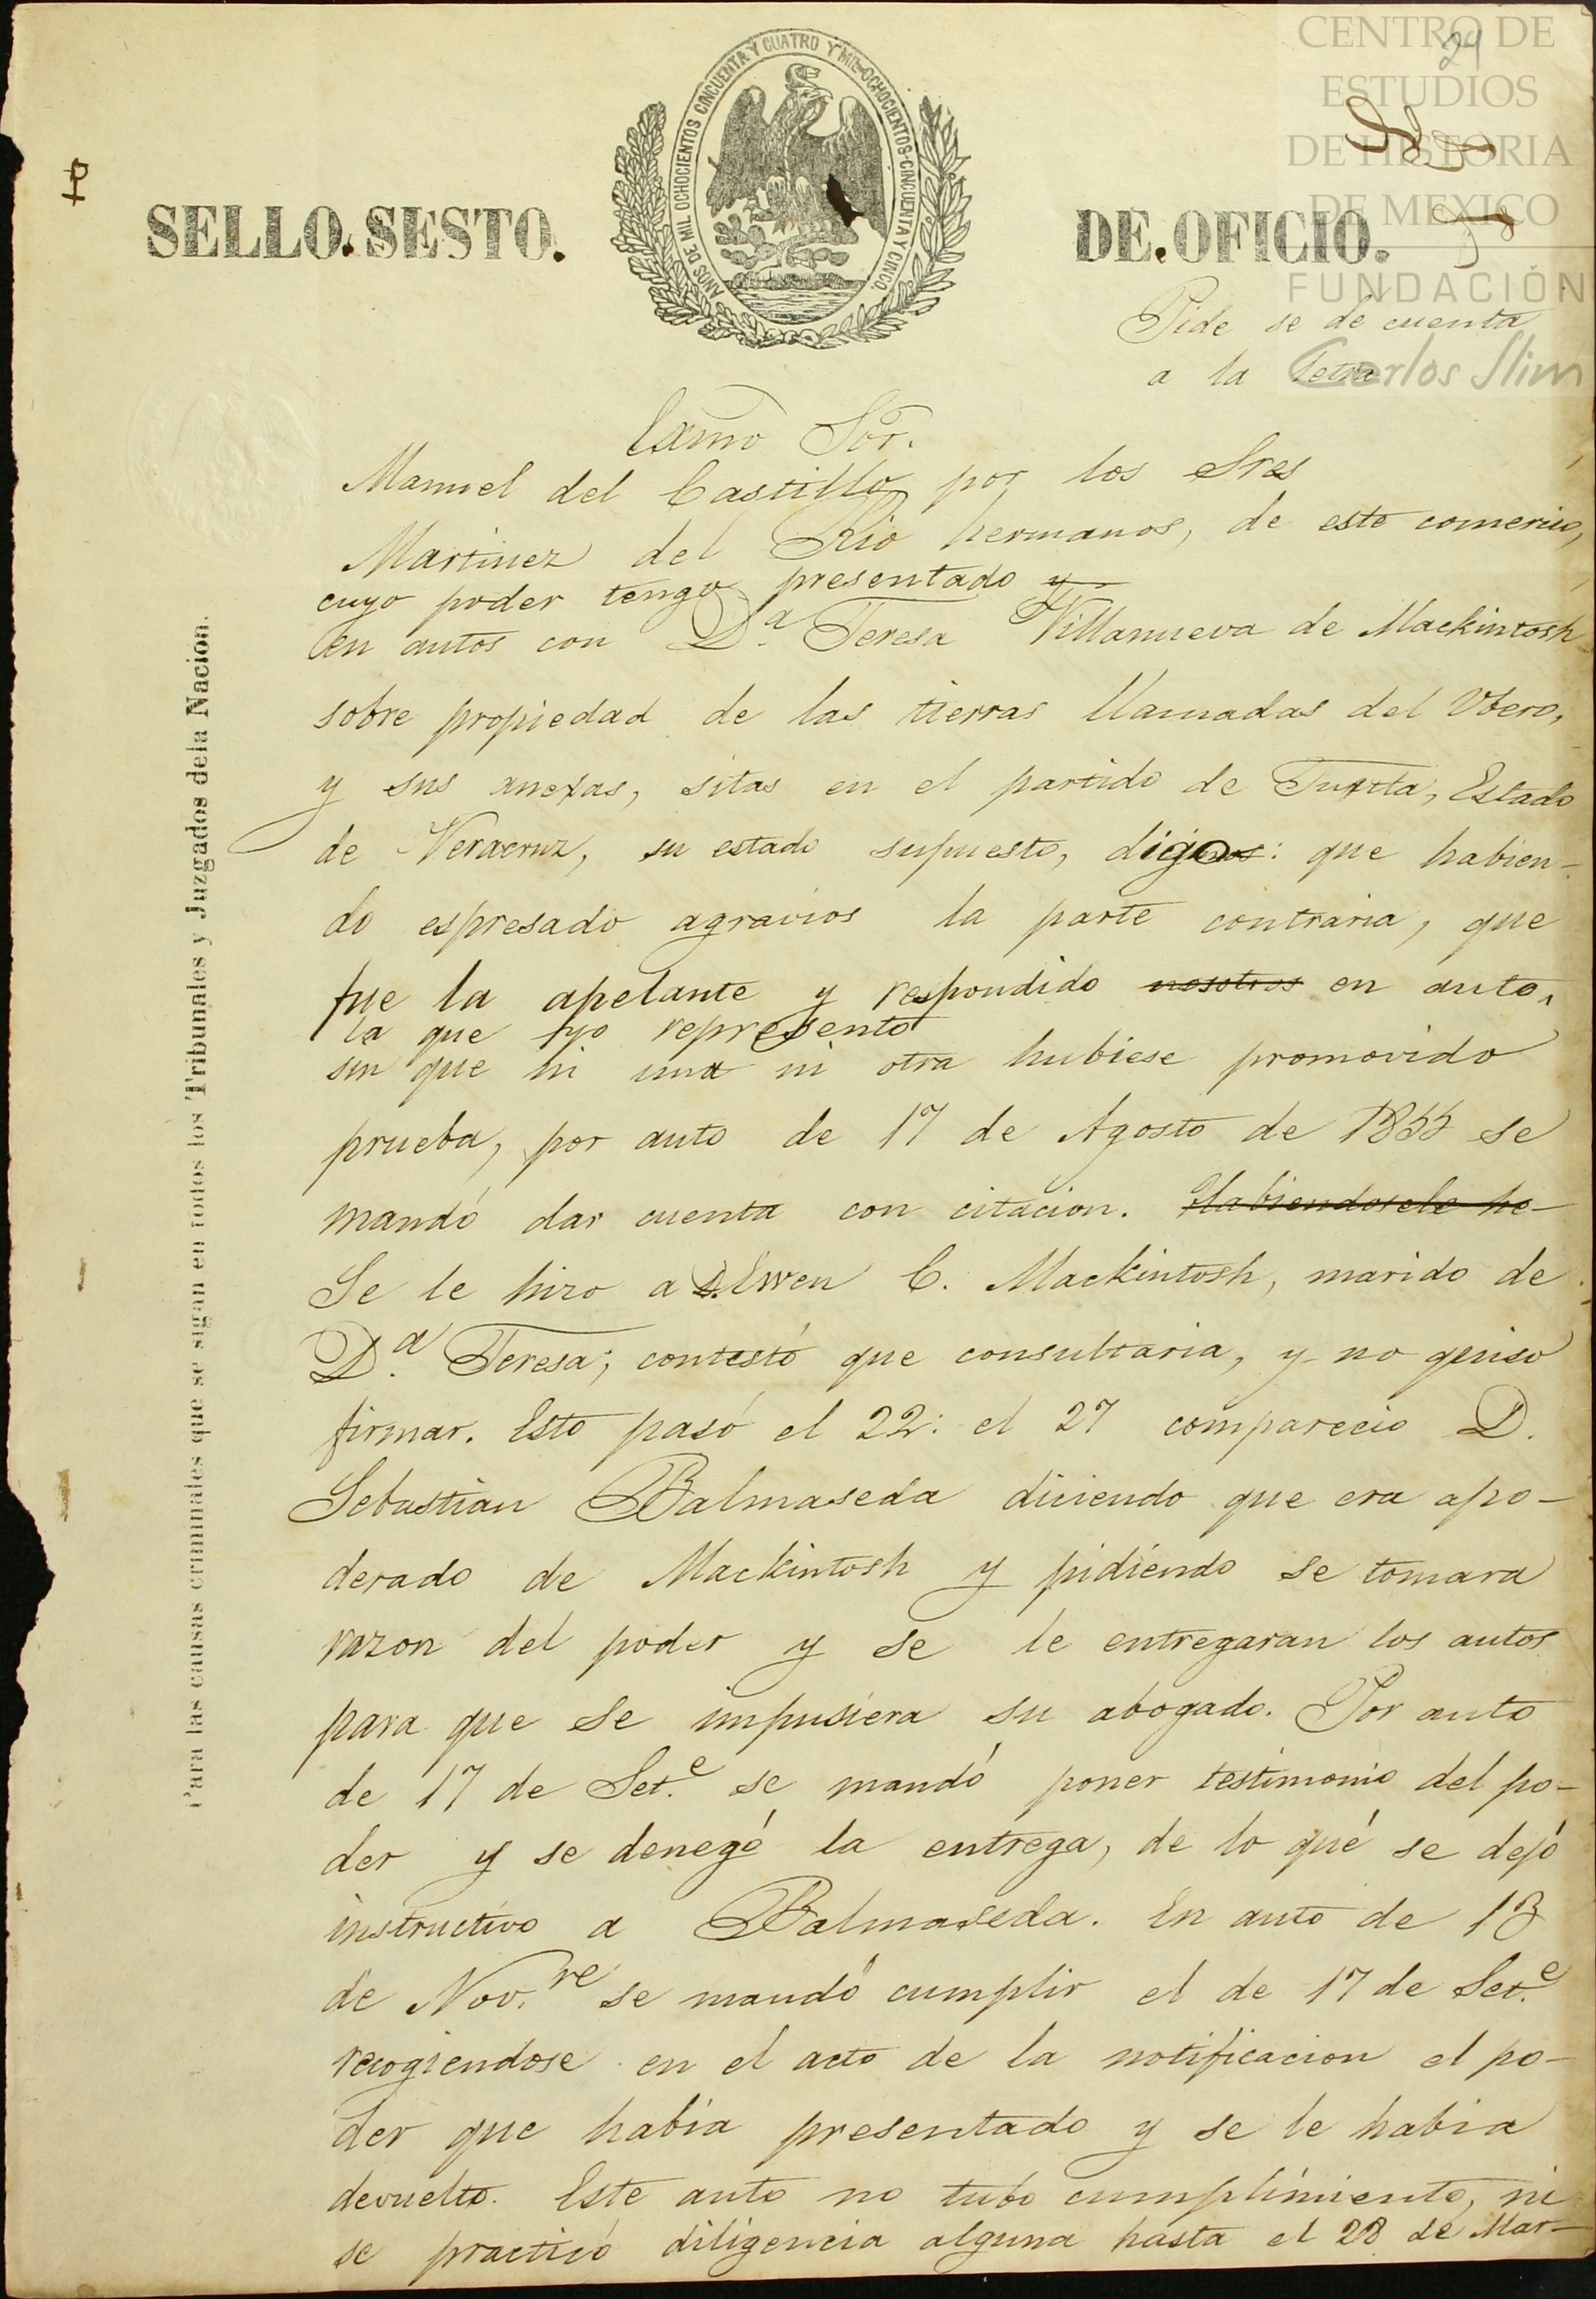 CENTRO DE
ESTUDIOS
DE HISTORIA
DE MEXICO
FUNDACIÓN
Carlos Slim
24
AÑOS DE MIL OCHOCIENTOS CINCUENTA Y CUATRO Y MIL OCHOCIENTOS CINCUENTA Y CINCO
SELLO. SESTO. DE. OFICIO.
Pide se dé cuenta
a la letra
Exmo Sor.
Manuel del Castillo por los Sres
Martinez del Rio hermanos, de este comercio,
cuyo poder tengo presentado y
en autos con D.a Teresa Villanueva de Mackintosh
sobre propiedad de las tierras llamadas del Obero,
y sus anexas, sitas en el partido de Tuxtla, Estado
de Veracruz, su estado supuesto, digo: que habien-
do espresado agravios la parte contraria, que
fue la apelante y respondido nosotros en auto,
la que yo represento
sin que ni una ni otra hubiese promovido
prueba, por auto de 17 de Agosto de 1855 se
mandó dar cuenta con citacion. Habiendosele he-
Se le hizo a D. Ewen C. Mackintosh, marido de
D.a Teresa; contestó que consultaria, y no quiso
firmar. Esto pasó el 22: el 27 comparecio D.
Sebastian Balmaseda diciendo que era apo-
derado de Mackintosh y pidiendo se tomara
razon del poder y se le entregaran los autos
para que se impusiera su abogado. Por auto
de 17 de Set.e se mandó poner testimonio del po-
der y se denegó la entrega, de lo qué se dejó
instructivo a Balmaseda. En auto de 13
de Nov.re se mandó cumplir el de 17 de Set.e
recogiendose en el acto de la notificacion el po-
der que habia presentado y se le habia
devuelto. Este auto no tubo cumplimiento, ni
se practicó diligencia alguna hasta el 28 de Mar-
Para las causas criminales que se sigan en todos los Tribunales y Juzgados de la Nación.